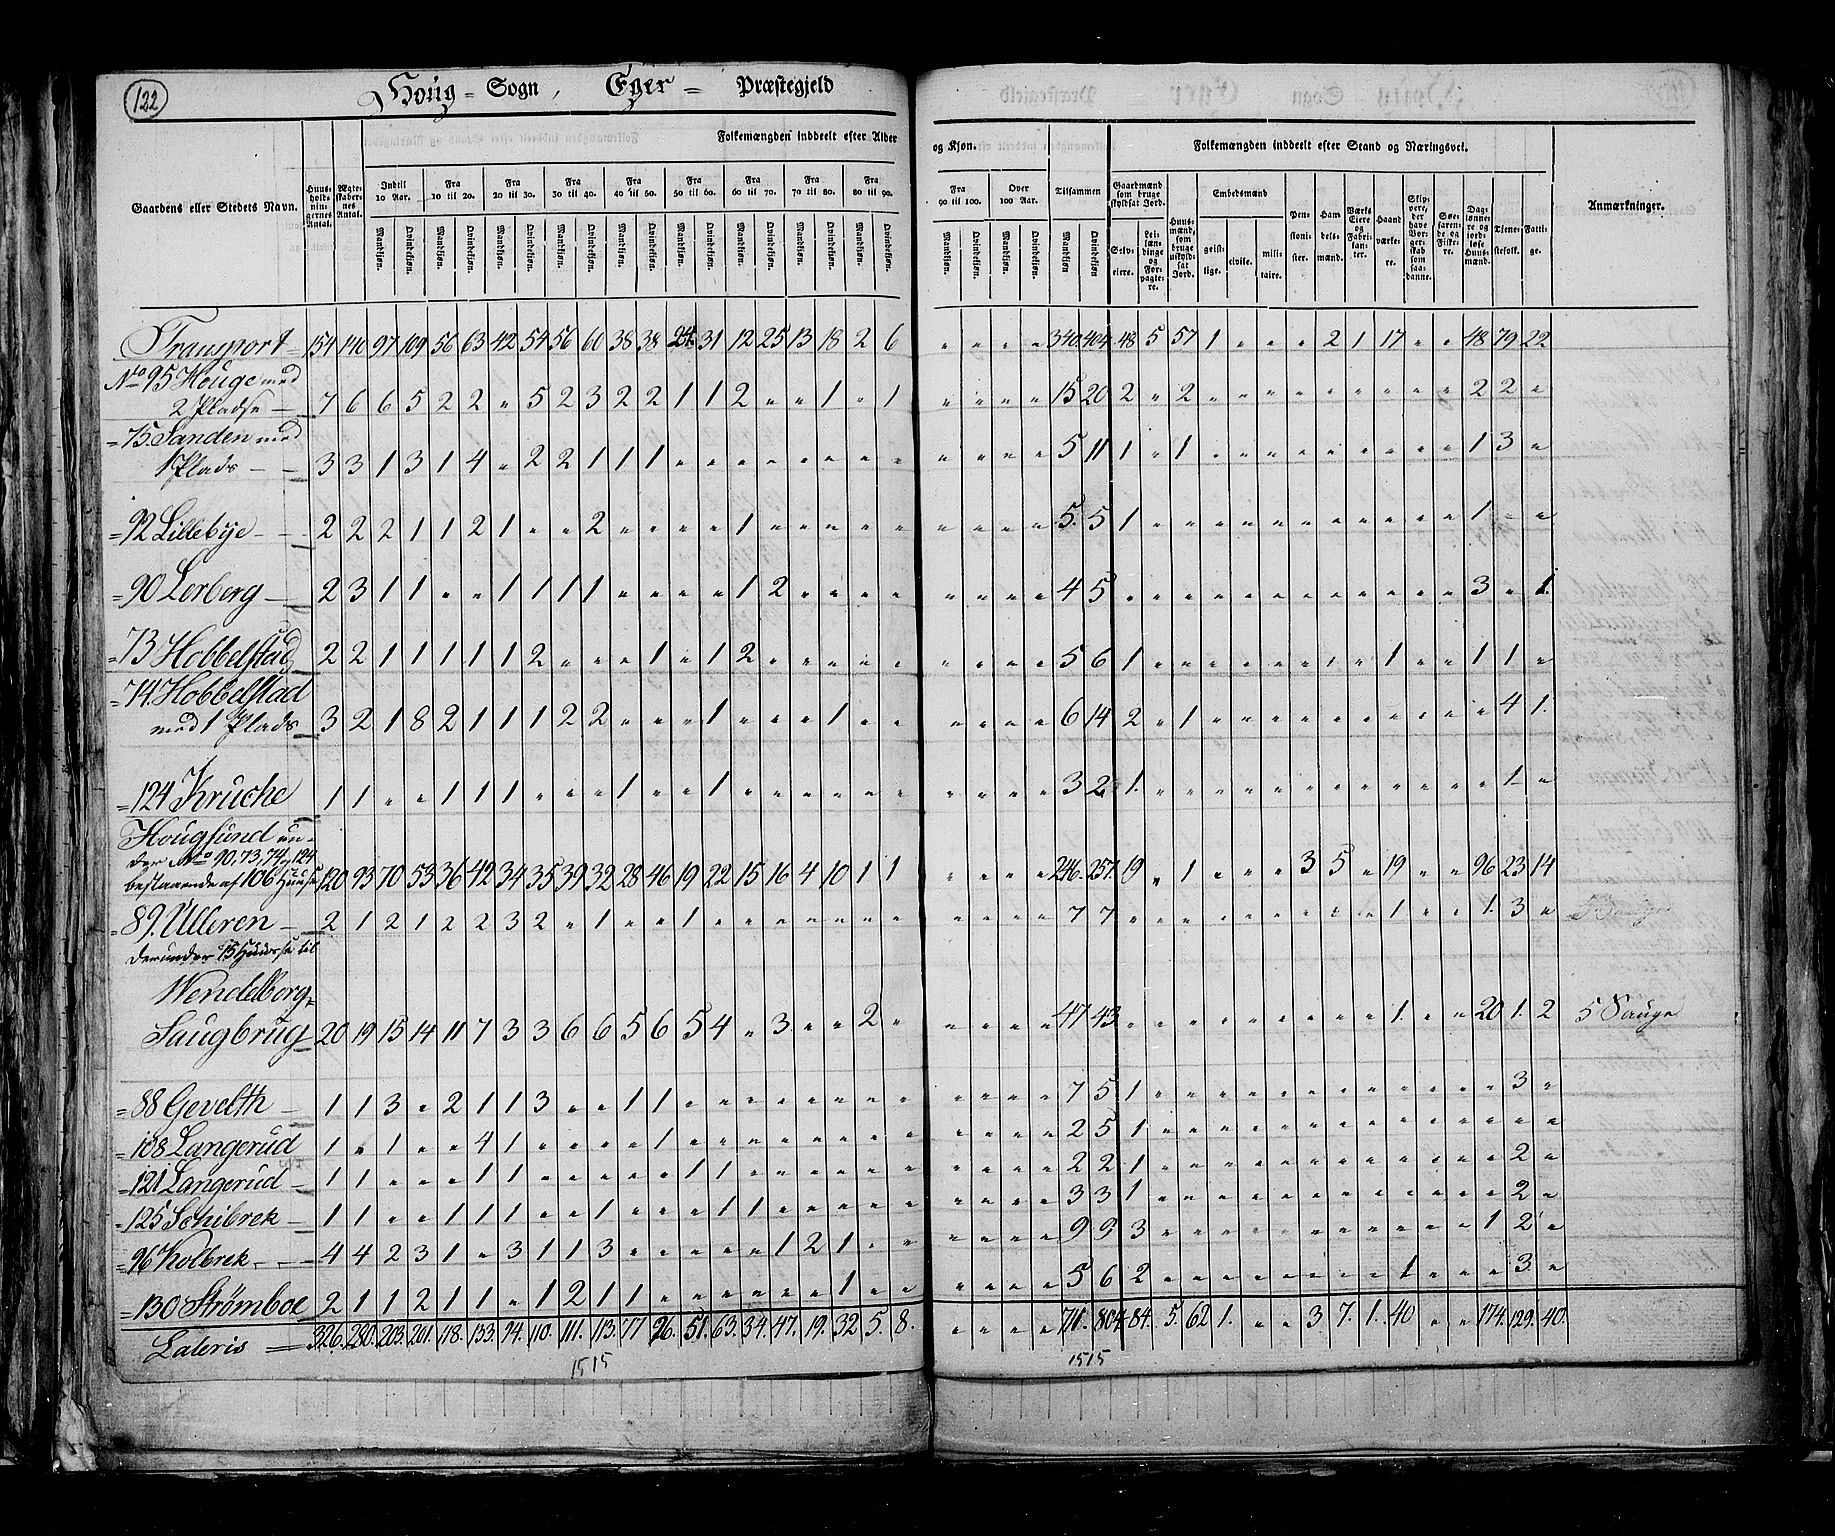 122
Houg = Sogn, Eger = Præstegjeld
Folkemængden inddeelt efter Alder og Kjøn.
Folkemængden inddeelt efter Stand og Næringsvei.
Gaardens eller Stedets Navn.
Huus-holdnin-gernes Antal. Ægte-skaber-nes Antal. Indtil 10 Aar. Fra 10 til 20. Fra 20 til 30. Fra 30 til 40. Fra 40 til 50. Fra 50 til 60. Fra 60 til 70. Fra 70 til 80. Fra 80 til 90. Fra 90 til 100. Over 100 Aar. Tilsammen
Gaardmænd som bruge skyldsat Jord. Selveiere. Leilændinge og Forpagtere. Huusmænd, som bruge uskyldsat Jord. Embedsmænd geistlige. civile. militaire. Pensionister. Handelsmænd. Værks Eiere og Fabrikanter. Haandværkere. Skippere, der have Borgerskab som saadanne. Søefarende og Fiskere. Dagslønnere og jordløse Huusmænd. Tjenestefolk. Fattige. Anmærkninger.
Mandkjøn. Qvindekjøn. Mandkjøn. Qvindekjøn. Mandkjøn. Qvindekjøn. Mandkjøn. Qvindekjøn. Mandkjøn. Qvindekjøn. Mandkjøn. Qvindekjøn. Mandkjøn. Qvindekjøn. Mandkjøn. Qvindekjøn. Mandkjøn. Qvindekjøn. Mandkjøn. Qvindekjøn. Mandkjøn. Qvindekjøn. Mandkjøn Qvindekjøn.
Transport = 154 140 97 109 56 63 42 54 56 60 38 38 24 31 12 25 13 18 2 6 " " " " 340 404 48 5 57 1 " " " 2 1 17 " " 48 79 22
No 95 Houge med
2 Pladse — 7 6 6 5 2 2 " 5 2 3 2 2 1 1 2 " " 1 " 1 " " " " 15 20 2 " 2 " " " " " " " " " 2 2 "
= 75. Sanden med
1 Plads — 3 3 1 3 1 4 " 2 2 1 1 1 " " " " " " " " " " " " 5 11 1 " 1 " " " " " " " " " 1 3 "
= 92 Lillebÿe — 2 2 2 1 1 2 1 " " 2 " " " " 1 " " " " " " " " " 5 5 1 " " " " " " " " " " " 1 " "
= 90 Lerberg — 2 3 1 1 " " 1 1 1 1 " " " " 1 2 " " " " " " " " 4 5 " " " " " " " " " " " " 3 " 1
= 73 Hobbelstad 2 2 1 1 1 1 1 2 " " " 1 " 1 2 " " " " " " " " " 5 6 1 " " " " " " " " 1 " " 1 1 "
= 74. Hobbelstad
med 1 Plads 3 2 1 8 2 1 1 1 2 2 " " " 1 " " " 1 " " " " " " 6 14 2 " 1 " " " " " " " " " " 4 1
= 124 Kruche 1 1 " " 1 1 1 " " " 1 " " 1 " " " " " " " " " " 3 2 1 " " " " " " " " " " " " 1 "
Hougsund un-
der No 90, 73, 74 og 124
bestaaende af 106 Huuse 120 93 70 53 36 42 34 35 39 32 28 46 19 22 15 16 4 10 1 1 " " " " 246 257 19 " 1 " " " 3 5 " 19 " " 96 23 14
= 89. Ulleren — 2 1 2 1 2 2 3 2 " 1 " " 1 " " " " " " " " " " " 7 7 " " " " " " " " " 1 " " 1 3 "
derunder 15 Huuse til
Wendelborg=
Saugbrug 20 19 15 14 11 7 3 3 6 6 5 6 5 4 " 3 " " 2 " " " " " 47 43 " " " " " " " " " 1 " " 20 1 2 5 Sauge
= 88 Gevelth — 1 1 3 " 2 1 1 3 " " 1 1 " " " " " " " " " " " " 7 5 1 " " " " " " " " " " " " 3 "
= 108 Langerud 1 " 1 " " 4 1 " " " " 1 " " " " " " " " " " " " 2 5 1 " " " " " " " " " " " " " "
= 121 Langerud — 1 1 " " " 1 1 " " " " " 1 1 " " " " " " " " " " 2 2 1 " " " " " " " " " " " " 2 "
= 125 Schibrek — 1 1 " " 1 1 1 " " 1 " " " 1 1 " " " " " " " " " 3 3 1 " " " " " " " " " " " " 2 "
= 96 Kolbrek — 4 4 2 3 1 " 3 1 1 3 " " " " " 1 2 1 " " " " " " 9 9 3 " " " " " " " " " " " 1 2 "
= 130 Strømboe 2 1 1 2 1 1 " 1 2 1 1 " " " " " " 1 " " " " " " 5 6 2 " " " " " " " " 1 " " " 3 "
Lateris = 326. 280. 203. 201. 118. 133. 94. 110. 111. 113. 77 96. 51. 63. 34. 47. 19. 32. 5. 8. " " " " 711. 804. 84. 5. 62 1. " " 3 7. 1. 40 " " 174. 129. 40.
1515 1515